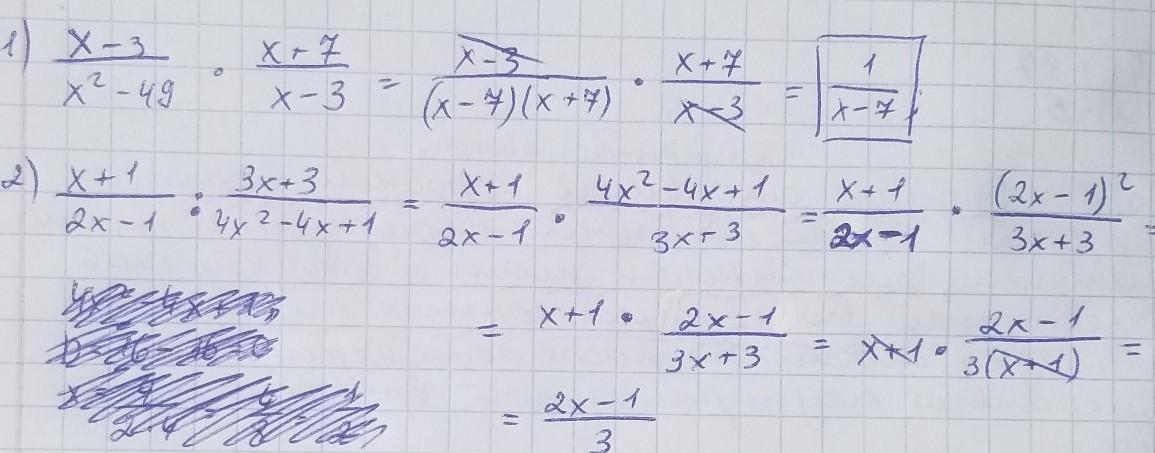 1) (x-3)/(x²-49) · (x+7)/(x-3) = (x-3)/((x-7)(x+7)) · (x+7)/(x-3) = 1/(x-7)
2) (x+1)/(2x-1) : (3x+3)/(4x²-4x+1) = (x+1)/(2x-1) · (4x²-4x+1)/(3x+3) = (x+1)/(2x-1) · (2x-1)²/(3x+3) =
= x+1 · (2x-1)/(3x+3) = x+1 · (2x-1)/(3(x+1)) =
= (2x-1)/3